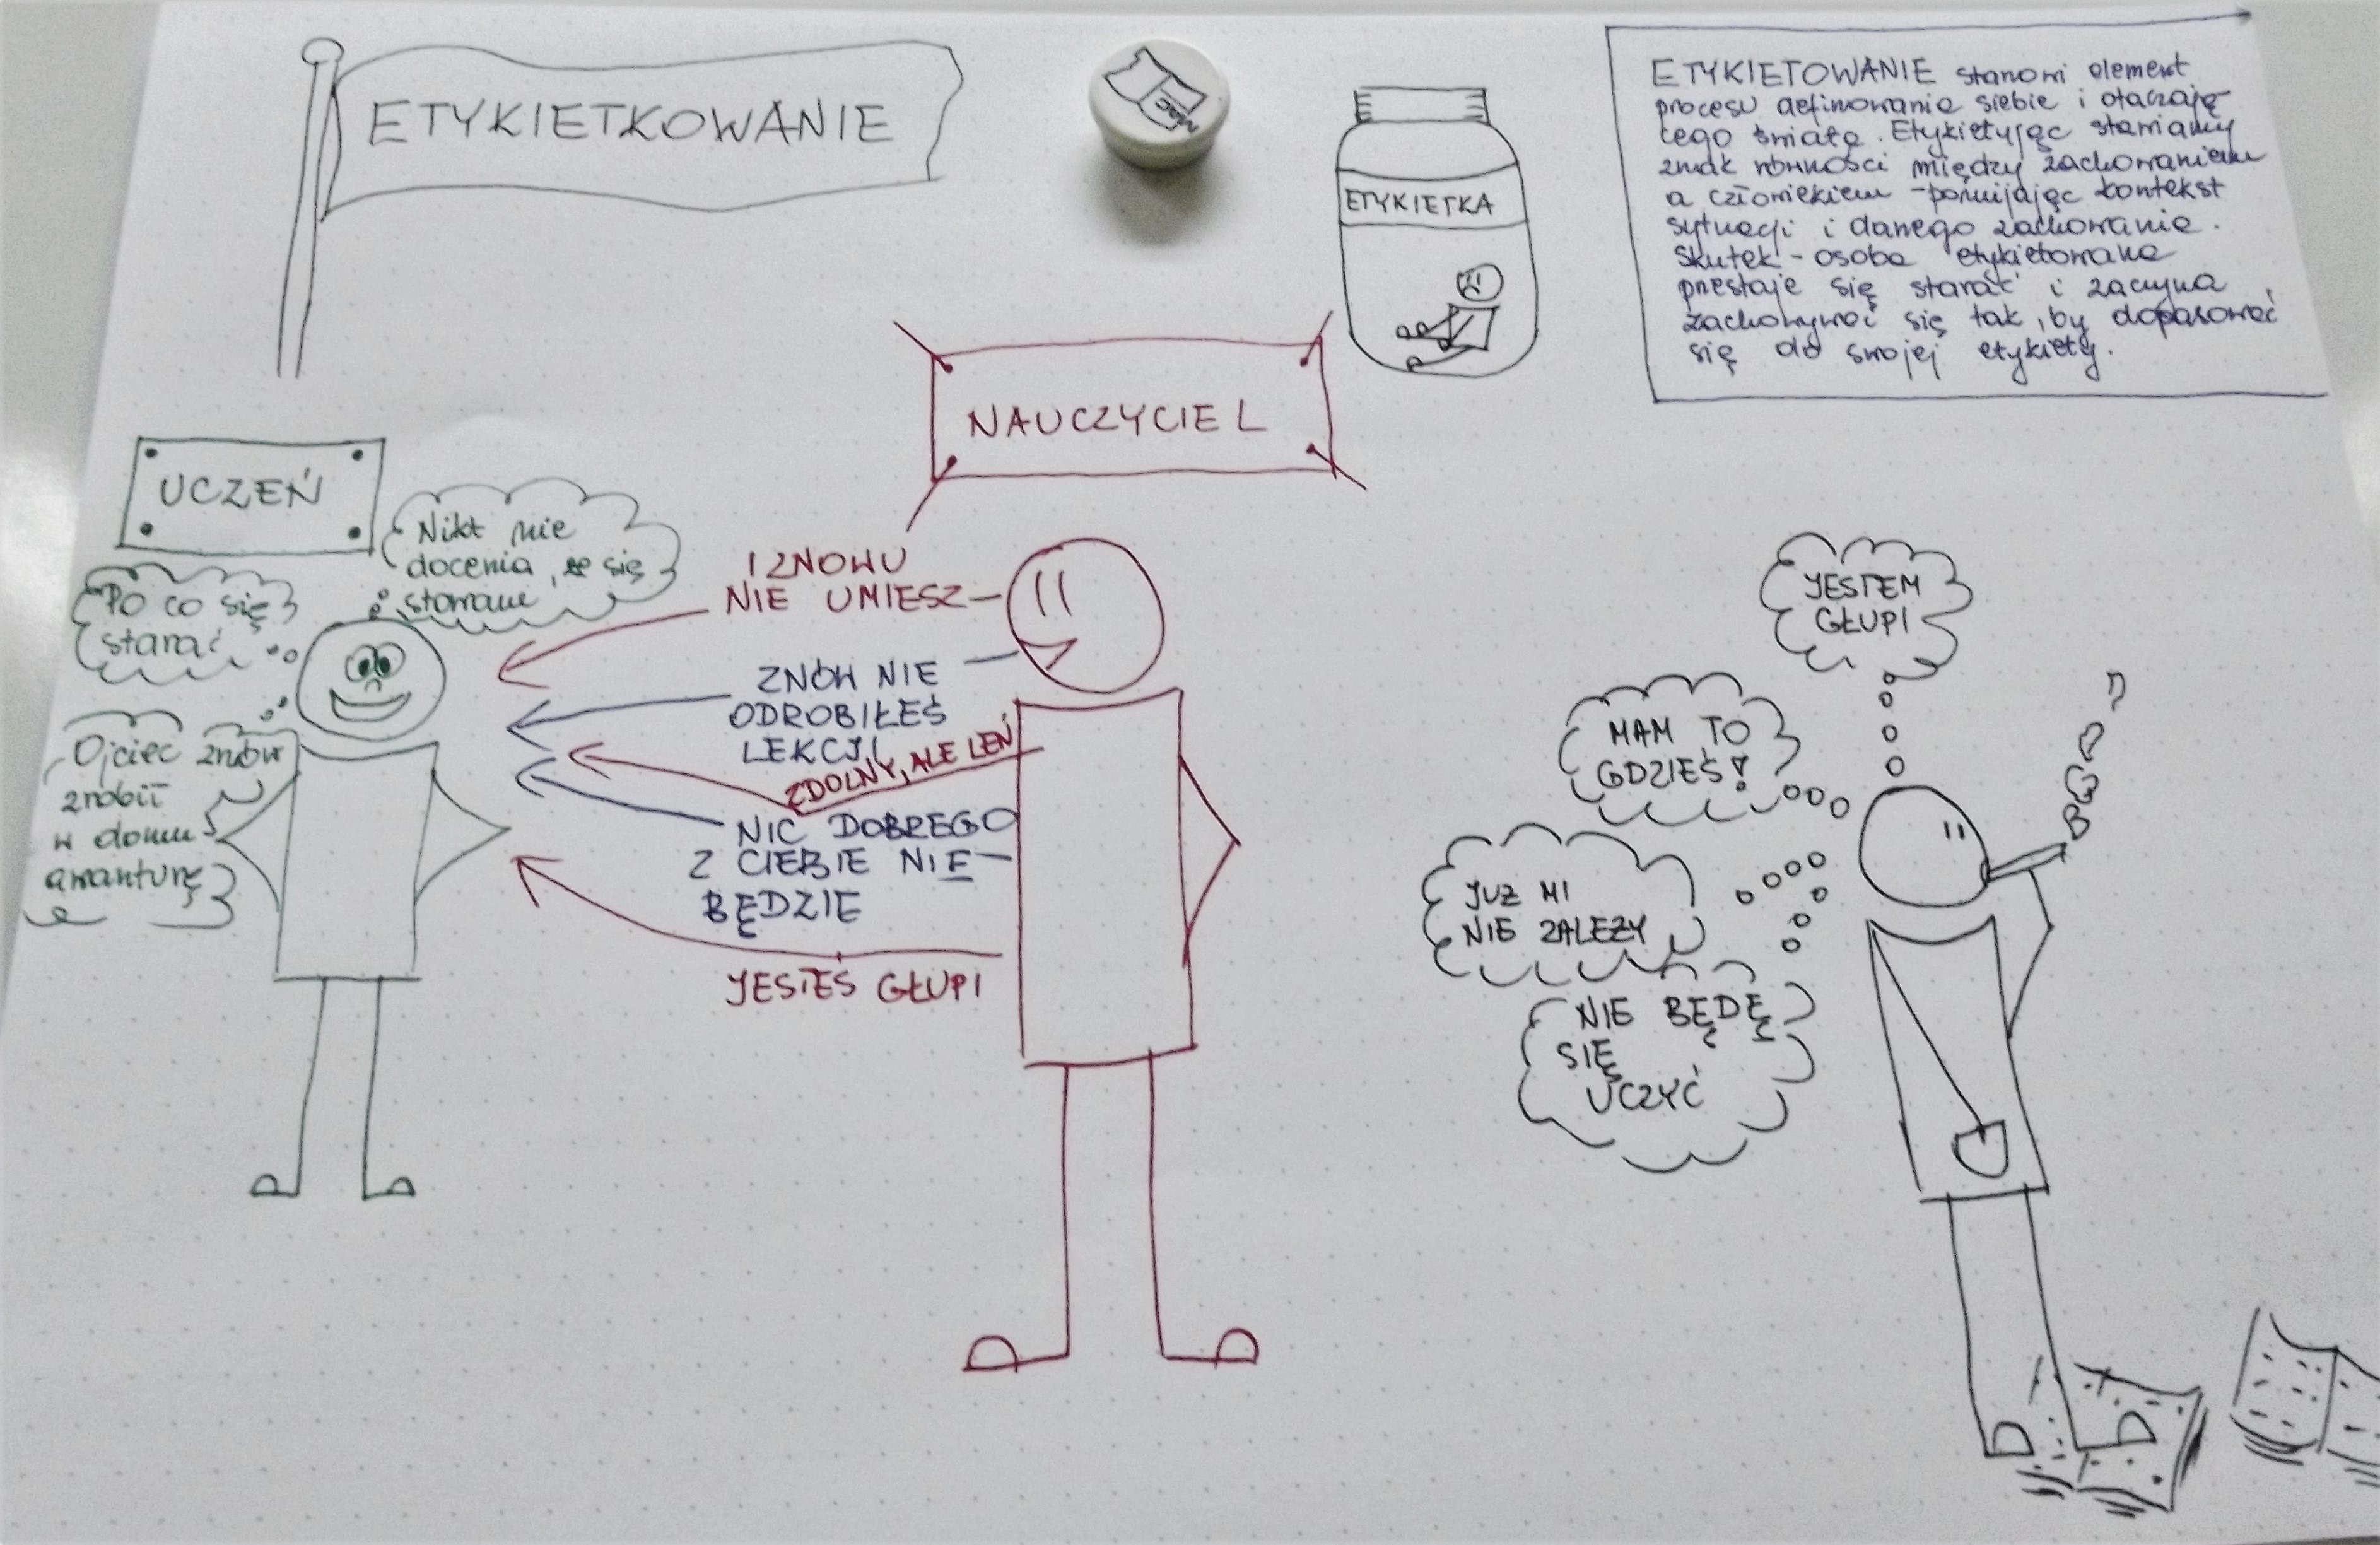 ETYKIETKOWANIE
ETYKIETKA
ETYKIETOWANIE stanowi element
procesu definiowania siebie i otaczają-
cego świata. Etykietując stawiamy
znak równości między zachowaniem
a człowiekiem - pomijając kontekst
sytuacji i danego zachowania.
Skutek - osoba etykietowana
przestaje się starać i zaczyna
zachowywać się tak, by dopasować
się do swojej etykiety.
NAUCZYCIEL
UCZEŃ
Nikt nie
docenia, że się
staram
Po co się
starać
Ojciec znów
zrobił
w domu
awanturę
I ZNOWU
NIE UMIESZ
ZNÓW NIE
ODROBIŁEŚ
LEKCJI
ZDOLNY, ALE LEŃ
NIC DOBREGO
Z CIEBIE NIE
BĘDZIE
JESTEŚ GŁUPI
JESTEM
GŁUPI
MAM TO
GDZIEŚ!
JUZ MI
NIE ZALEZY
NIE BĘDĘ
SIĘ
UCZYĆ